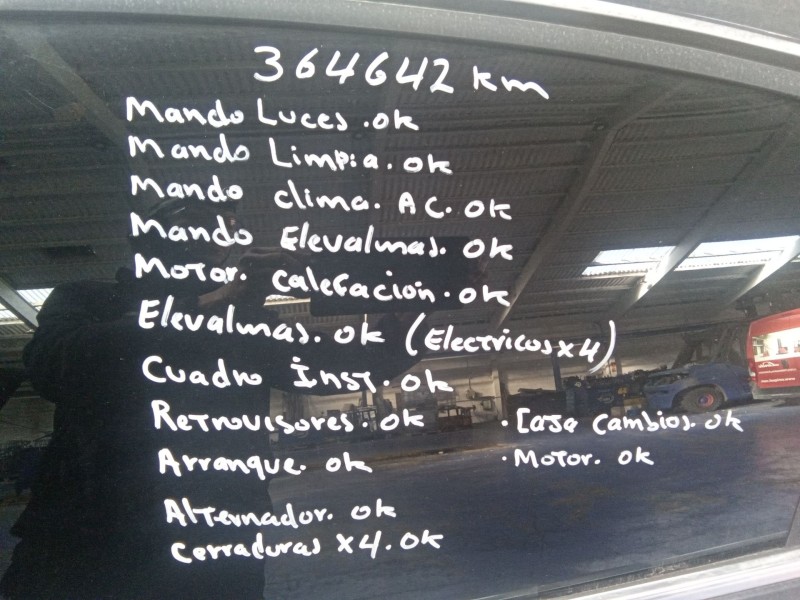 364642 km
Mando Luces.ok
Mando Limpia.ok
Mando clima. AC. ok
Mando Elevalmas. ok
Motor. calefacion.ok
Elevalmas. ok (Electricos x4)
Cuadro inst. ok
Retrovisores. ok
Arranque. ok
Alternador. ok
cerraduras x4.ok
· Caja cambios. ok
· Motor. ok